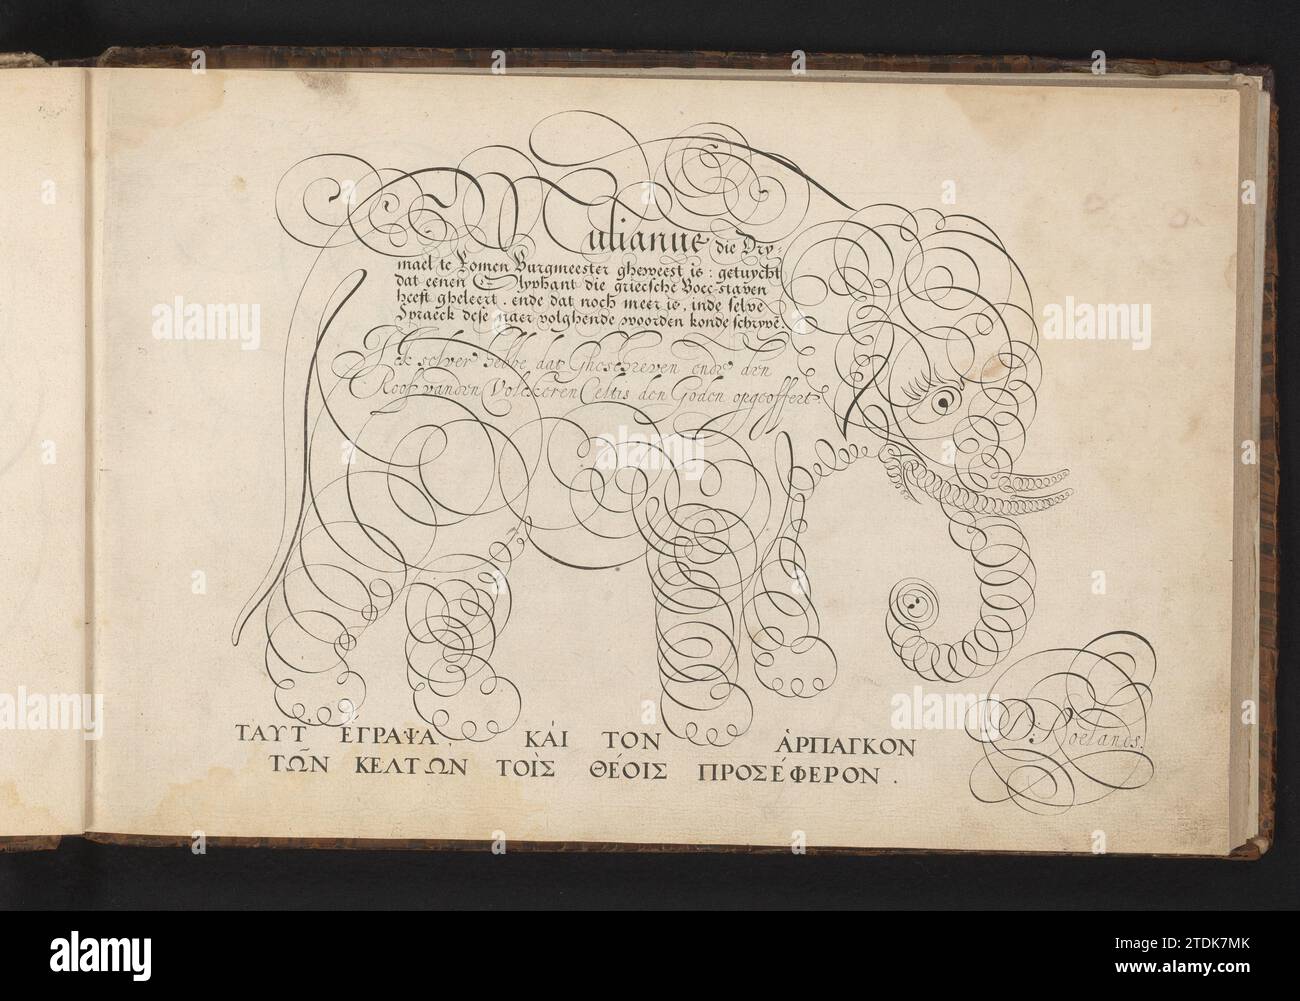 Mulianus die Dry-
mael te Romen Burgmeester gheweest is: getuycht
dat eenen Olyphant die griecsche Bocc-staven
heeft gheleert. ende dat noch meer is, inde selve
Spraeck dese naer volghende woorden konde schryvē.
Ick selver hebbe dat Gheschreven ende den
Roof vanden Volckeren Celtis den Goden opgeoffert.
ΤΑΥΤ ἘΓΡΑΨΑ, ΚΑῚ ΤΟΝ ἈΡΠΑΓΚΟΝ
ΤΩ͂Ν ΚΕΛΤΩΝ ΤΟῚΣ ΘΈΟΙΣ ΠΡΟΣΈΦΕΡΟΝ.
D: Roelands.
alamy
Image ID: 2TDK7MK
www.alamy.com